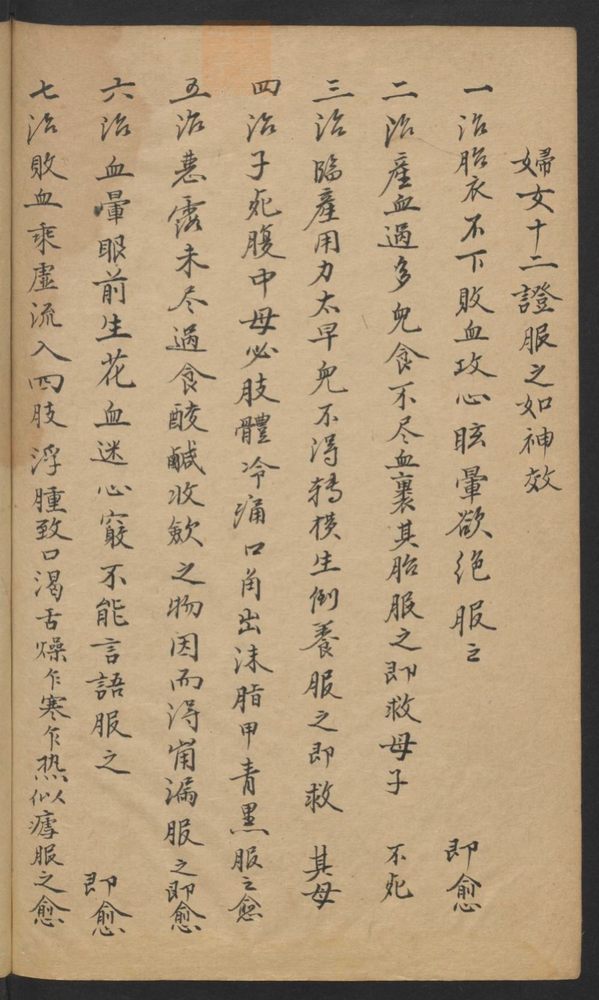 婦女十二證服之如神效
一治胎衣不下敗血攻心眩暈欲絶服之 即愈
二治產血過多兒食不尽血裹其胎服之即救母子 不死
三治臨產用力太早兒不得轉橫生倒養服之即救 其母
四治子死腹中母必肢體冷痛口角出沫脂甲青黑服之愈
五治惡露未尽過食酸鹹收歛之物因而得崩漏服之即愈
六治血暈眼前生花血迷心竅不能言語服之 即愈
七治敗血乘虛流入四肢浮腫致口渴舌燥乍寒乍热似瘧服之愈